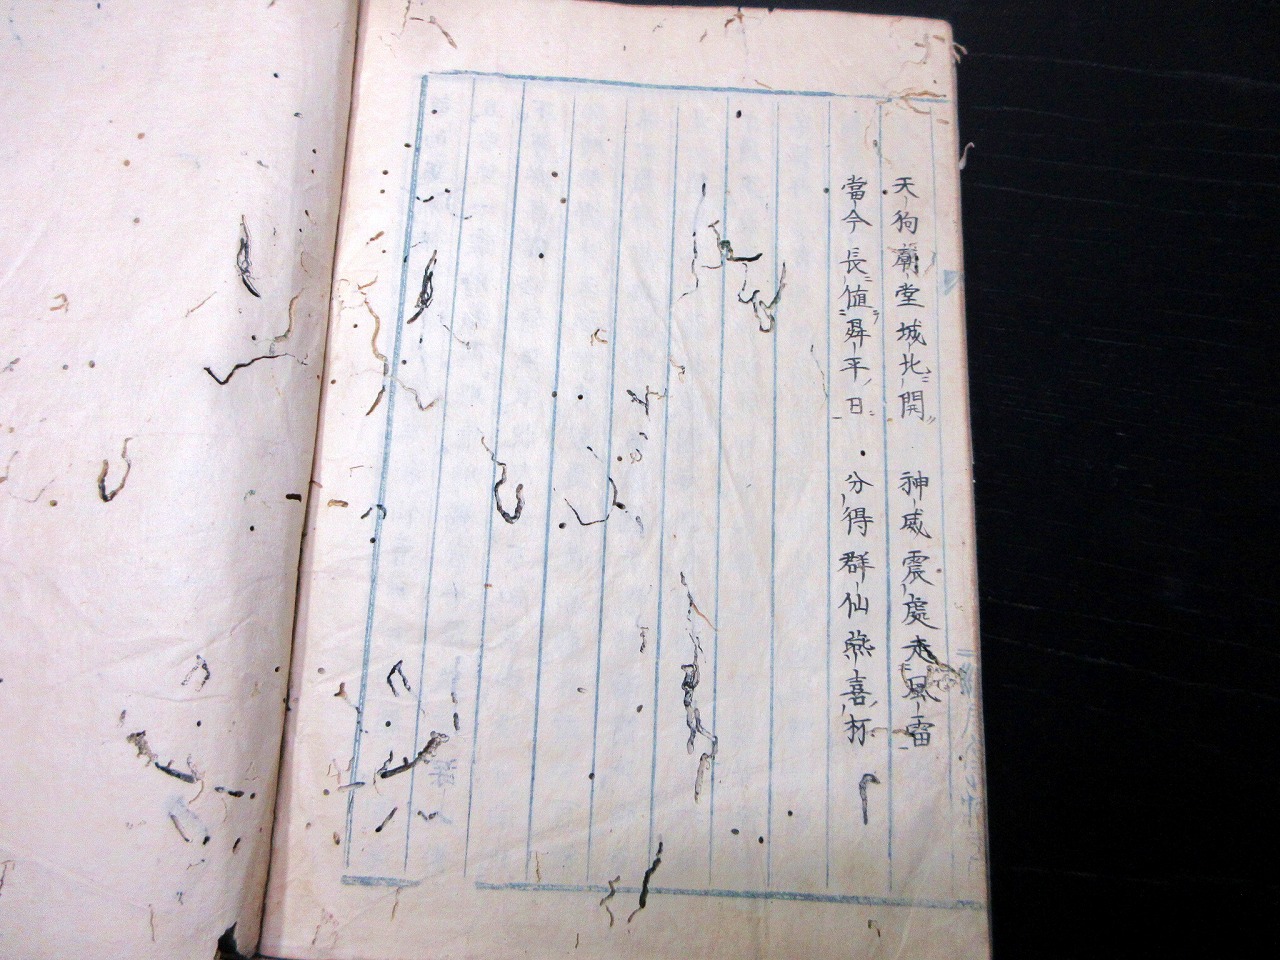 天狗廟堂城北開　神威震處走風雷
當今長値昇平日　分得群仙燕喜杯